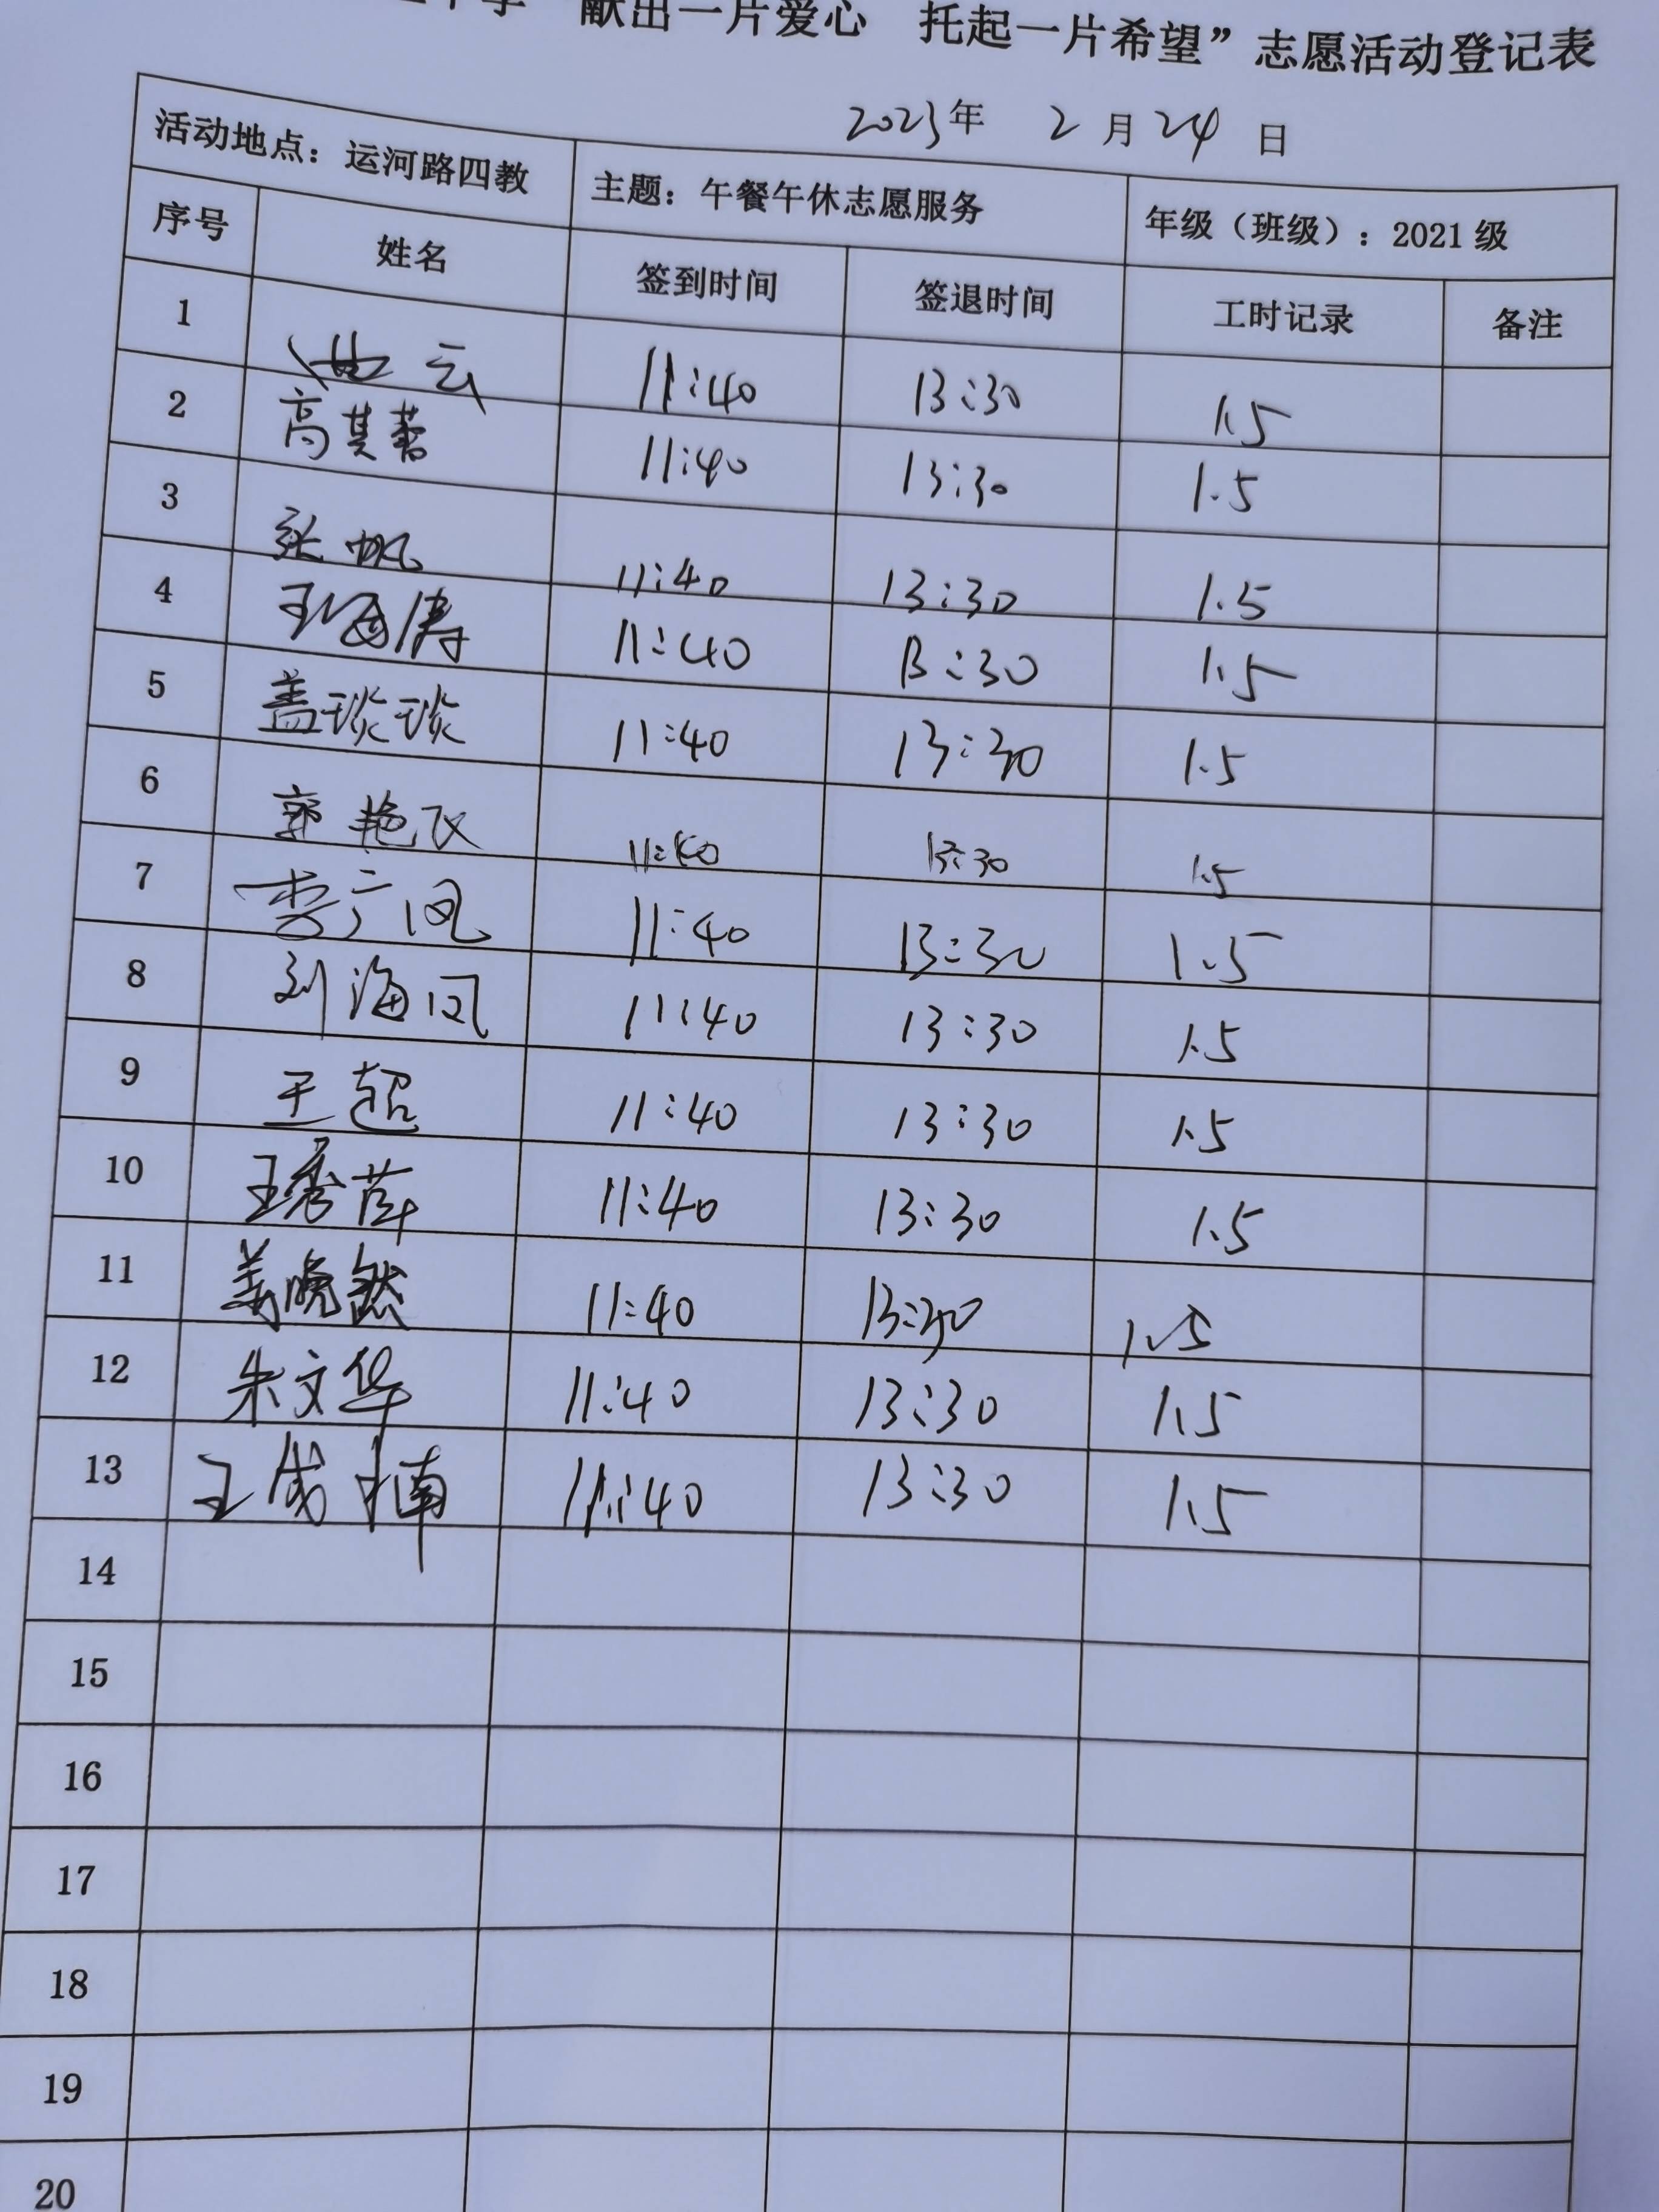 献出一片爱心 托起一片希望”志愿活动登记表
2023年 2月24日
活动地点：运河路四教 主题：午餐午休志愿服务 年级（班级）：2021级
序号 姓名 签到时间 签退时间 工时记录 备注
1 云 11:40 13:30 1.5
2 高其蕾 11:40 13:30 1.5
3 张帆 11:40 13:30 1.5
4 王海涛 11:40 13:30 1.5
5 盖琰琰 11:40 13:30 1.5
6 郭艳飞 11:40 13:30 1.5
7 李广凤 11:40 13:30 1.5
8 刘海凤 11:40 13:30 1.5
9 王超 11:40 13:30 1.5
10 王秀萍 11:40 13:30 1.5
11 姜晓然 11:40 13:30 1.5
12 朱文华 11:40 13:30 1.5
13 王成楠 11:40 13:30 1.5
14
15
16
17
18
19
20